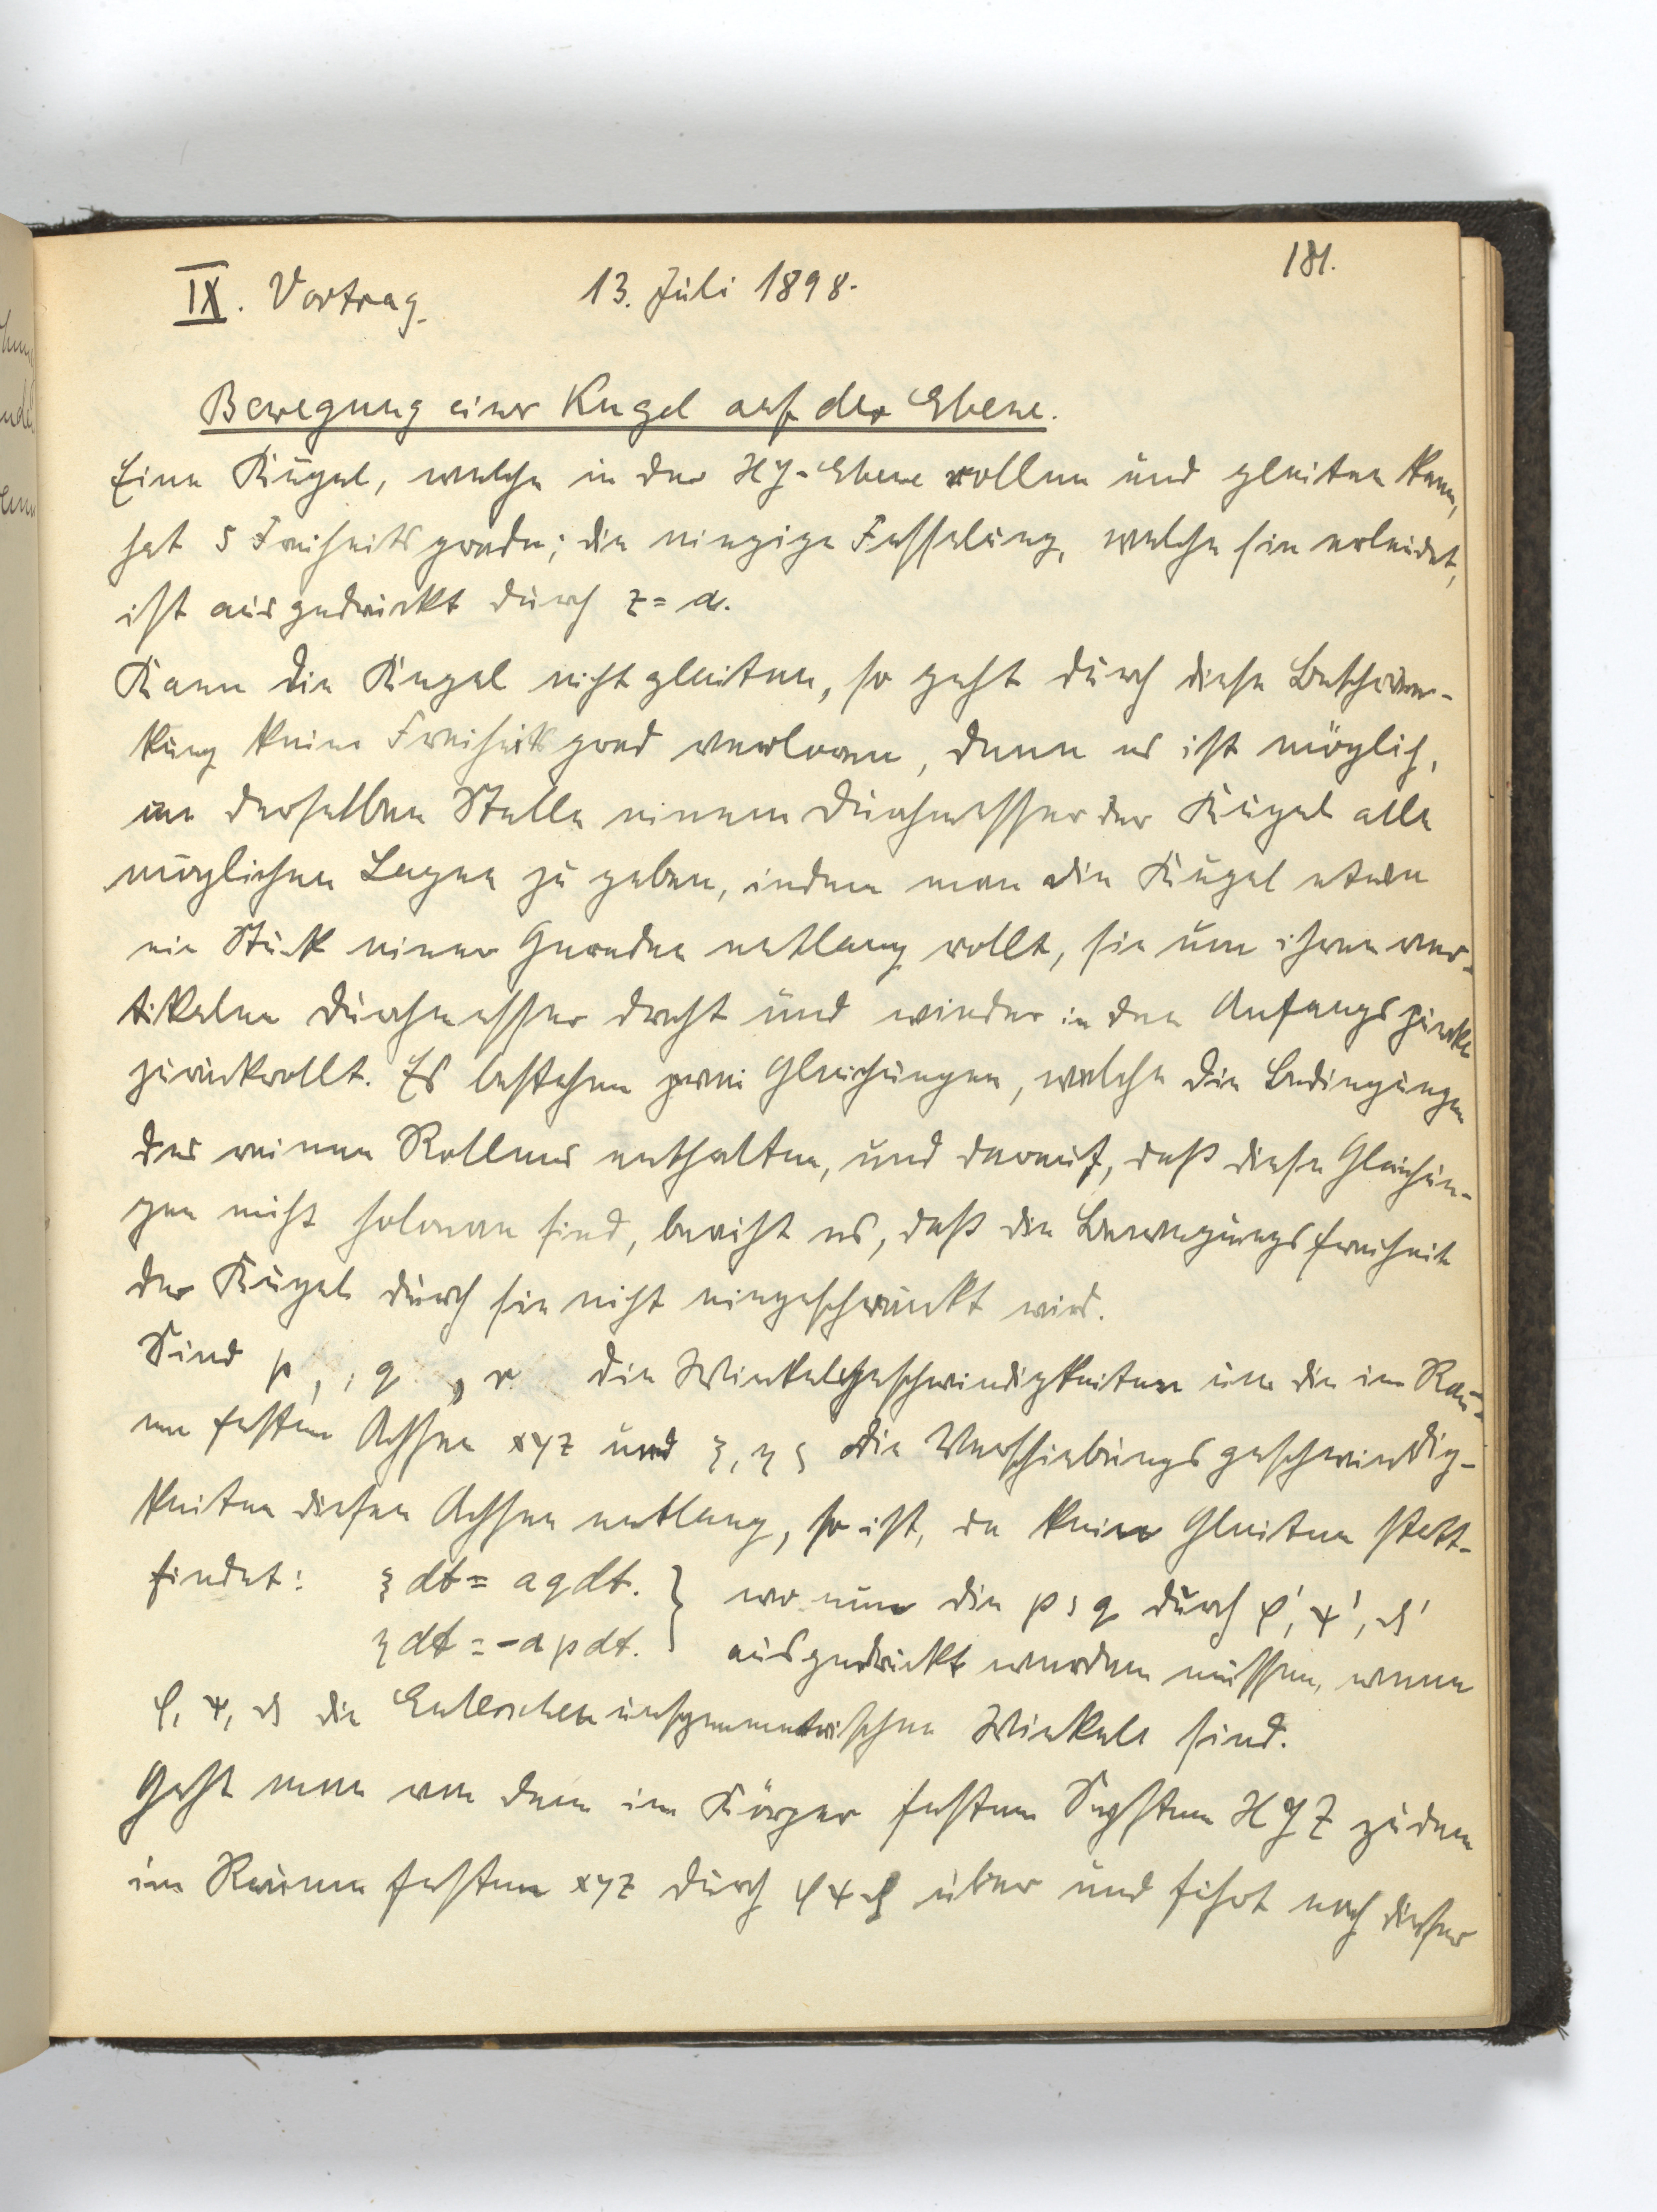 181.
IX. Vortrag. 13. Juli 1898.
Bewegung einer Kugel auf der Ebene.
Eine Kugel, welche in der XY-Ebene rollen und gleiten kann,
hat 5 Freiheitsgrade; die einzige Fesselung, welche sie erleidet,
ist ausgedrückt durch z = a.
Kann die Kugel nicht gleiten, so geht durch diese Beschrän-
kung keine Freiheitsgrad verloren, denn es ist möglich,
an derselben Stelle einem Durchmesser der Kugel alle
möglichen Lagen zu geben, indem man die Kugel etwa
ein Stück einer Geraden entlang rollt, sie um ihren ver-
tikalen Durchmesser dreht und wieder in den Anfangspunkt
zurückrollt. Es bestehen zwei Gleichungen, welche die Bedingungen
des reinen Rollens enthalten, und darauf, daß diese Gleichun-
gen nicht holonom sind, beruht es, daß die Bewegungsfreiheit
der Kugel durch sie nicht eingeschränkt wird.
Sind p, q, r die Winkelgeschwindigkeiten um die im Rau-
me festen Achsen xyz und ξ, η ζ die Verschiebungsgeschwindig-
keiten diesen Achsen entlang, so ist, da kein Gleiten statt-
findet: ξ dt = a q dt. } wo nun die p, q durch φ', ψ', ϑ'
η dt = -a p dt. } ausgedrückt werden müssen, wenn
φ, ψ, ϑ die Eulerschen unsymmetrischen Winkel sind.
Geht man von dem im Körper festen System XYZ zu dem
im Raume festen xyz durch φ ψ ϑ über und führt nach dieser